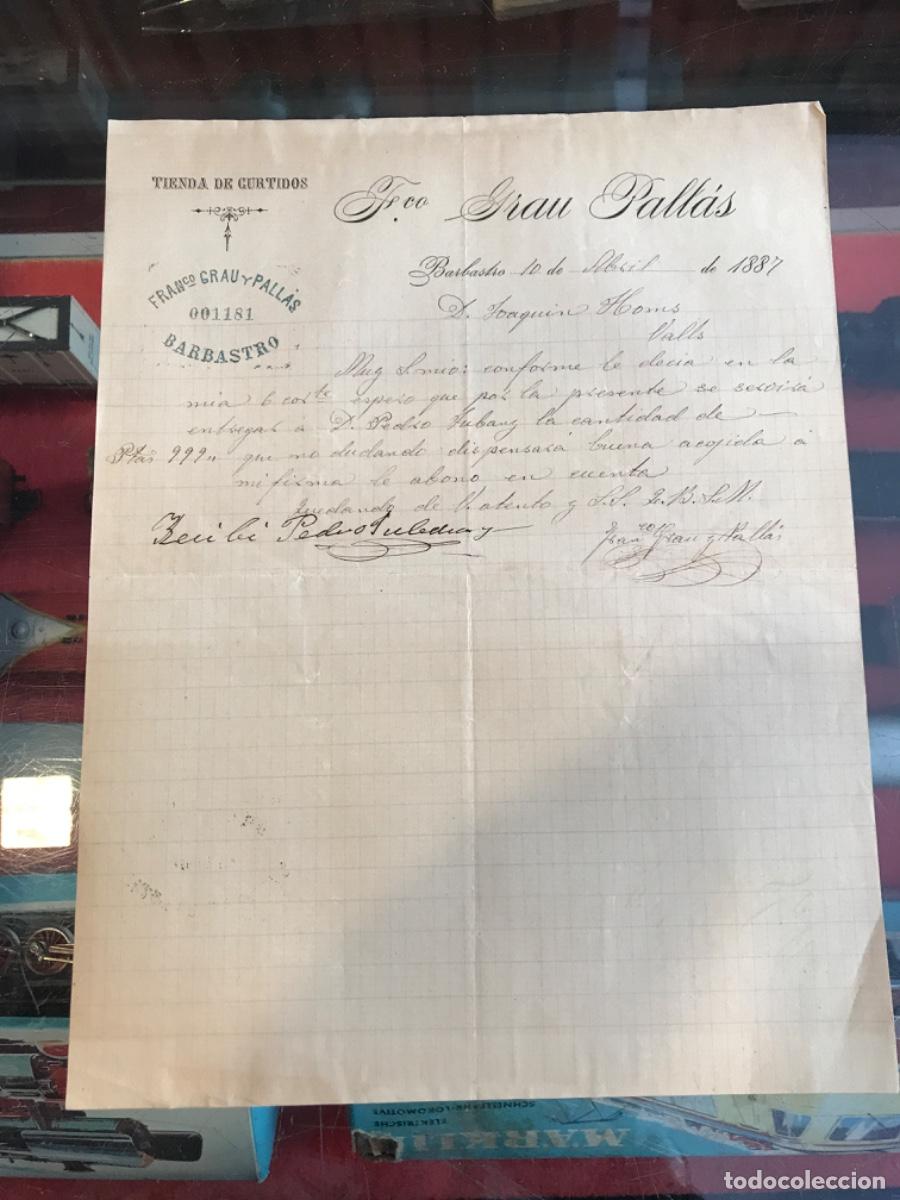 TIENDA DE CURTIDOS
F.co Grau Pallás
FRANCO GRAU Y PALLÁS
001181
BARBASTRO
Barbastro 10 de Abril de 1887
D. Joaquin Homs
Valls
Muy S. mio: conforme le decia en la
mia 6 corte espero que por la presente se servirá
entregar á D. Pedro la cantidad de
Ptas 999,, que no dudando dispensará buena acojida á
mi firma le abono en cuenta
Quedando de V. atento y S.S. Q.B.S.M.
Recibí Pedro
Franco Grau y Pallás
ELEKTRISCHE
SCHNELLZUG-LOKOMOTIVE
MARKLIN
todocoleccion
todocoleccion.net